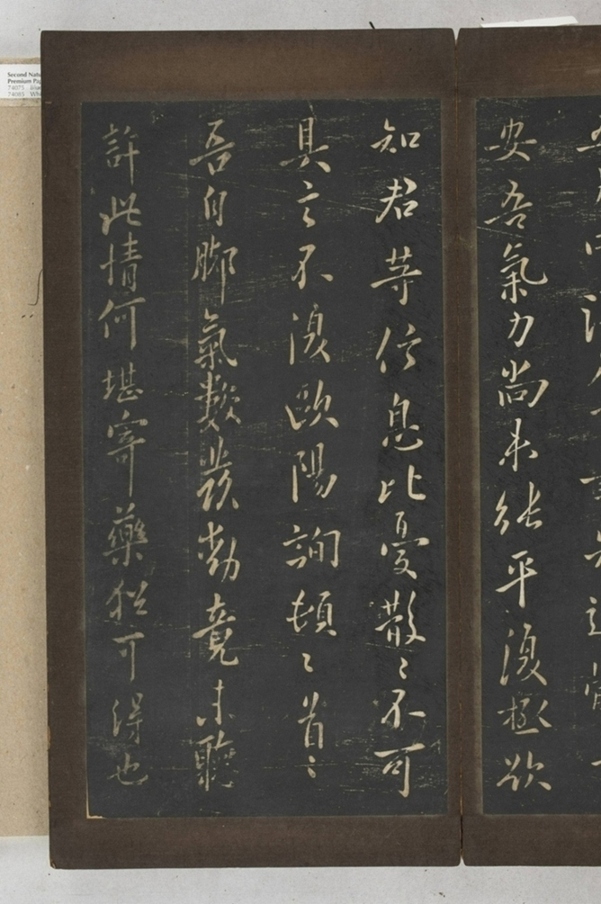 安吾氣力尚未能平復極欲
知君等信息比憂散〻不可
具言不復歐陽詢頓〻首〻
吾自腳氣數發動竟未聽
許此情何堪寄藥猶可得也
Second Natu
Premium Pa